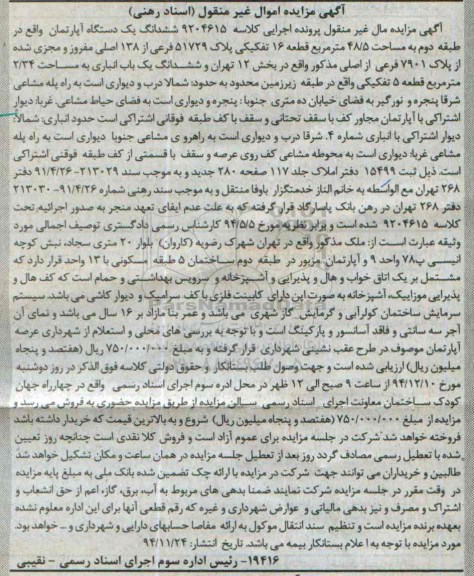 آگهی مزایده اموال غیر منقول (اسناد رهنی)
آگهی مزایده مال غیر منقول پرونده اجرایی کلاسه ۹۲۰۴۶۱۵ ششدانگ یک دستگاه آپارتمان واقع در
طبقه دوم به مساحت ۴۸/۵ مترمربع قطعه ۱۶ تفکیکی پلاک ۵۱۷۲۹ فرعی از ۱۳۸ اصلی مفروز و مجزی شده
از پلاک ۷۹۰۱ فرعی از اصلی مذکور واقع در بخش ۱۲ تهران و ششدانگ یک باب انباری به مساحت ۲/۳۴
مترمربع قطعه ۵ تفکیکی واقع در طبقه زیرزمین محدود به حدود: شمالا درب و دیواری است به راه پله مشاعی
شرقا پنجره و نورگیر به فضای خیابان ده متری جنوبا: پنجره و دیواری است به فضای حیاط مشاعی. غربا: دیوار
اشتراکی با آپارتمان مجاور کف با سقف تحتانی و سقف با کف طبقه فوقانی اشتراکی است حدود انباری: شمالا:
دیوار اشتراکی با انباری شماره ۴. شرقا درب و دیواری است به راهرو ی مشاعی جنوبا دیواری است به راه پله
مشاعی غربا: دیواری است به محوطه مشاعی کف روی عرصه و سقف با قسمتی از کف طبقه فوقنی اشتراکی
است. ذیل ثبت ۱۵۴۹۹ دفتر املاک جلد ۱۱۷ صفحه ۲۸۰ جدید و به موجب سند ۲۱۳۰۲۹-۹۱/۴/۲۶ دفتر
۲۶۸ تهران مع الواسطه به خانم الناز خدمتگزار بافا منتقل و به موجب سند رهنی شماره ۹۱/۴/۲۶-۲۱۳۰۳۰
دفتر ۲۶۸ تهران در رهن بانک پاسارگاد قرار گرفته که به علت عدم ایفای تعهد منجر به صدور اجرائیه تحت
کلاسه ۹۲۰۴۶۱۵ شده است و برابر نظریه مورخ ۹۴/۵/۵ کارشناس رسمی دادگستری توصیف اجمالی مورد
وثیقه عبارت است از: ملک مذکور واقع در تهران شهرک رضویه (کاروان) بلوار ۲۰ متری سجاد، نبش کوچه
انیسی پ۷۸ واحد ۹ و آپارتمان مزبور در طبقه دوم ساختمان ۵ طبقه مسکونی با ۱۳ واحد قرار دارد که
مشتمل بر یک اتاق خواب و هال و پذیرایی و آشپزخانه و سرویس بهداشتی و حمام است که کف هال و
پذیرایی موزاییک، آشپزخانه به صورت اپن دارای کابینت فلزی با کف سرامیک و دیوار کاشی می باشد. سیستم
سرمایش ساختمان کولرآبی و گرمایش گاز شهری می باشد و عمر بنا مازاد بر ۱۶ سال می باشد و نمای آن
آجر سه سانتی و فاقد آسانسور و پارکینگ است و با توجه به بررسی های محلی و استعلام از شهرداری عرصه
آپارتمان موصوف در طرح عقب نشینی شهرداری قرار گرفته و به مبلغ ۷۵۰/۰۰۰/۰۰۰ ریال (هفتصد و پنجاه
میلیون ریال) ارزیابی شده است و جهت وصول طلب بستانکار و حقوق دولتی کلاسه فوق الذکر در روز دوشنبه
مورخ ۹۴/۱۲/۱۰ از ساعت ۹ صبح الی ۱۲ ظهر در محل اداره سوم اجرای اسناد رسمی واقع در چهارراه جهان
کودک ساختمان معاونت اجرای اسناد رسمی سالن مزایده از طریق مزایده حضوری به فروش می رسد و
مزایده از مبلغ ۷۵۰/۰۰۰/۰۰۰ (هفتصد و پنجاه میلیون ریال) شروع و به بالاترین قیمت که خریدار داشته باشد
فروخته خواهد شد شرکت در جلسه مزایده برای عموم آزاد است و فروش کلا نقدی است چنانچه روز تعیین
شده با تعطیل رسمی مصادف گردد روز بعد از تعطیل جلسه مزایده در همان ساعت و مکان تشکیل خواهد شد
طالبین و خریداران می توانند جهت شرکت در مزایده با ارائه چک تضمین شده بانک ملی به مبلغ پایه مزایده
در وقت مقرر در جلسه مزایده شرکت نمایند ضمنا بدهی های مربوط به آب، برق، گاز، اعم از حق انشعاب و
اشتراک و مصرف و نیز بدهی مالیاتی و عوارض شهرداری و غیره که رقم قطعی آنها برای این اداره معلوم نشده
بعهده برنده مزایده است و تنظیم سند انتقال موکول به ارائه مفاصا حسابهای دارایی و شهرداری و ... خواهد بود.
مورد مزایده با توجه به اعلام بستانکار بیمه می باشد. تاریخ انتشار: ۹۴/۱۱/۲۴
۱۹۴۱۶- رئیس اداره سوم اجرای اسناد رسمی - نقیبی